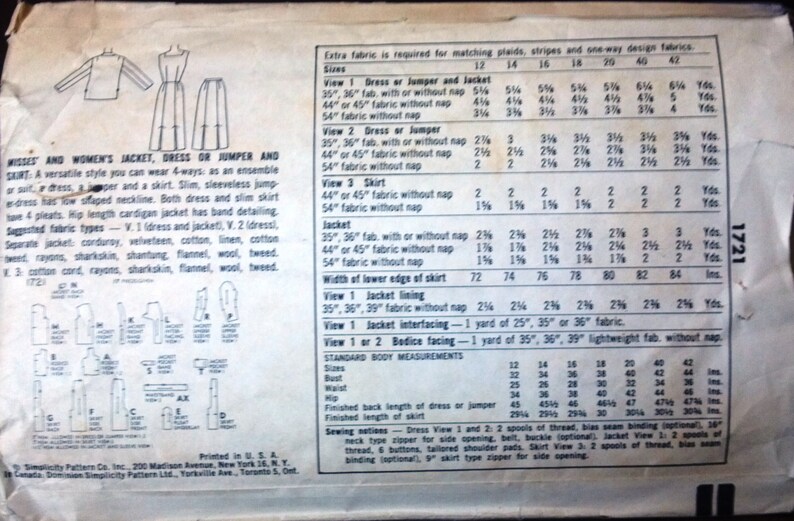 MISSES' AND WOMEN'S JACKET, DRESS OR JUMPER AND
SKIRT: A versatile style you can wear 4-ways: as an ensemble
or suit, a dress, a jumper and a skirt. Slim, sleeveless jump-
er-dress has low shaped neckline. Both dress and slim skirt
have 4 pleats. Hip length cardigan jacket has band detailing.
Suggested fabric types — V. 1 (dress and jacket), V. 2 (dress),
Separate jacket: corduroy, velveteen, cotton, linen, cotton
tweed, rayons, sharkskin, shantung, flannel, wool, tweed.
V. 3: cotton cord, rayons, sharkskin, flannel, wool, tweed.
1721
N
M
H
K
L
R
P
B
A
S
T
G
F
C
AX
E
D
Printed in U. S. A.
© Simplicity Pattern Co. Inc., 200 Madison Avenue, New York 16, N. Y.
In Canada: Dominion Simplicity Pattern Ltd., Yorkville Ave., Toronto 5, Ont.
Extra fabric is required for matching plaids, stripes and one-way design fabrics.
Sizes 12 14 16 18 20 40 42
View 1 Dress or Jumper and Jacket
35", 36" fab. with or without nap 5⅛ 5¼ 5⅝ 5¾ 5⅞ 6¼ 6¼ Yds.
44" or 45" fabric without nap 4⅛ 4⅛ 4¼ 4½ 4½ 4⅞ 5 Yds.
54" fabric without nap 3¼ 3⅜ 3½ 3⅞ 3⅞ 3⅞ 4 Yds.
View 2 Dress or Jumper
35", 36" fab. with or without nap 2⅞ 3 3⅛ 3½ 3½ 3½ 3⅝ Yds.
44" or 45" fabric without nap 2½ 2½ 2⅝ 2⅞ 2⅞ 3⅛ 3⅛ Yds.
54" fabric without nap 2 2 2⅛ 2⅛ 2½ 2½ 2½ Yds.
View 3 Skirt
44" or 45" fabric without nap 2 2 2 2 2 2 2 Yds.
54" fabric without nap 1⅝ 1⅝ 1⅝ 1⅝ 2 2 2 Yds.
Jacket
35", 36" fab. with or without nap 2⅜ 2⅜ 2½ 2⅞ 2⅞ 3 3 Yds.
44" or 45" fabric without nap 1⅞ 1⅞ 2⅛ 2⅛ 2¼ 2½ 2½ Yds.
54" fabric without nap 1⅝ 1⅝ 1⅝ 1¾ 1⅞ 2 2 Yds.
Width of lower edge of skirt 72 74 76 78 80 82 84 Ins.
View 1 Jacket lining
35", 36", 39" fabric without nap 2¼ 2¼ 2⅜ 2⅜ 2⅜ 2⅜ 2⅝ Yds.
View 1 Jacket interfacing — 1 yard of 25", 35" or 36" fabric.
View 1 or 2 Bodice facing — 1 yard of 35", 36", 39" lightweight fab. without nap.
STANDARD BODY MEASUREMENTS
Sizes 12 14 16 18 20 40 42
Bust 32 34 36 38 40 42 44 Ins.
Waist 25 26 28 30 32 34 36 Ins.
Hip 34 36 38 40 42 44 46 Ins.
Finished back length of dress or jumper 45 45½ 46 46½ 47 47½ 47¾ Ins.
Finished length of skirt 29¼ 29½ 29¾ 30 30¼ 30½ 30¾ Ins.
Sewing notions — Dress View 1 and 2: 2 spools of thread, bias seam binding (optional), 16"
neck type zipper for side opening, belt, buckle (optional). Jacket View 1: 2 spools of
thread, 6 buttons, tailored shoulder pads. Skirt View 3: 2 spools of thread, bias seam
binding (optional), 9" skirt type zipper for side opening.
1721